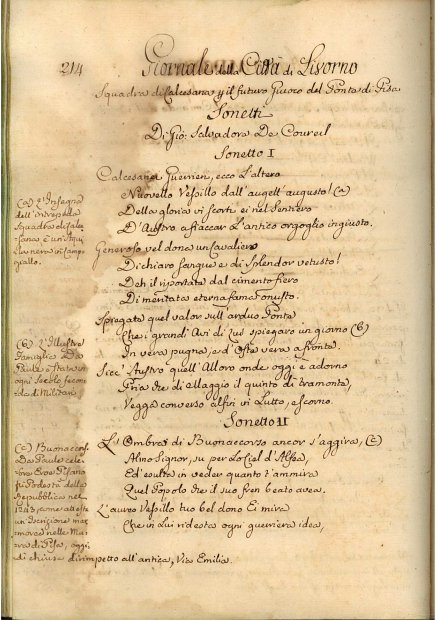 214
Giornale della Città di Livorno
Squadra di Calcesana p il futuro Giuoco del Ponte di Pisa
Sonetti
Di Gio: Salvadore De Coureil
Sonetto I
Calcesane Guerrier, ecco l'altero
Novello Vessillo dall'augell'augusto! (a)
Della gloria vi scorti ei nel Sentiero
D'Austro a fiaccar l'antico orgoglio ingiusto.
Generoso vel dona un Cavaliero
Di chiaro sangue e di splendor vetusto!
Deh il riportate dal cimento fiero
Di meritata eterna fama onusto.
Spiegate quel valor sull'arduo Ponte
Che i grandi Avi di lui spiegaro un giorno (b)
In vera pugna, ed Oste vera a fronte.
Sicc' Austro quell'Alloro onde oggi è adorno
Pria che di Maggio il quinto dì tramonta,
Vegga converso alfin in Lutto, e scorno.
(a) L'Insegna
dell'intrepida
Squadra di Cal-
cesana è un'Aqui-
la nera in campo
giallo.
(b) L'Illustre
Famiglia Da
Paule è stata in
ogni Secolo fecon-
da di Militari
Sonetto II
L'Ombra di Buonaccorso ancor s'aggira, (c)
Almo Signor, su per lo Ciel d'Alfea,
Ed esulta in veder quanto t'ammira
Quel Popolo che il suo fren beato avea.
L'aureo Vessillo tuo bel dono Ei mira
Che in Lui ridesta ogni guerriera idea,
(c) Buonaccorso
Da Paule cele-
bre Eroe Pisano
fu Podestà della
Repubblica nel
come attesta
un'Iscrizione mar-
morea nelle Mu-
ra di Pisa, oggi
di chiusa dirimpetto all'antica, Via Emilia.